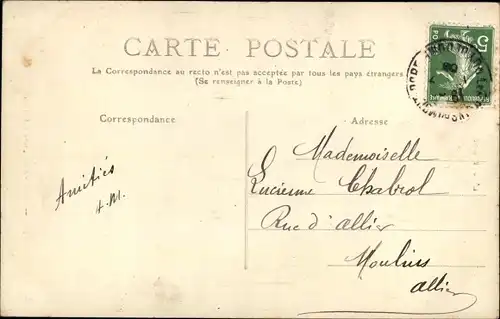 CARTE POSTALE
La Correspondance au recto n'est pas acceptée par tous les pays étrangers.
(Se renseigner à la Poste)
Correspondance
Adresse
Amitiés
A.M.
Mademoiselle
Lucienne Chabrol
Rue d'allier
Moulins
allier
5